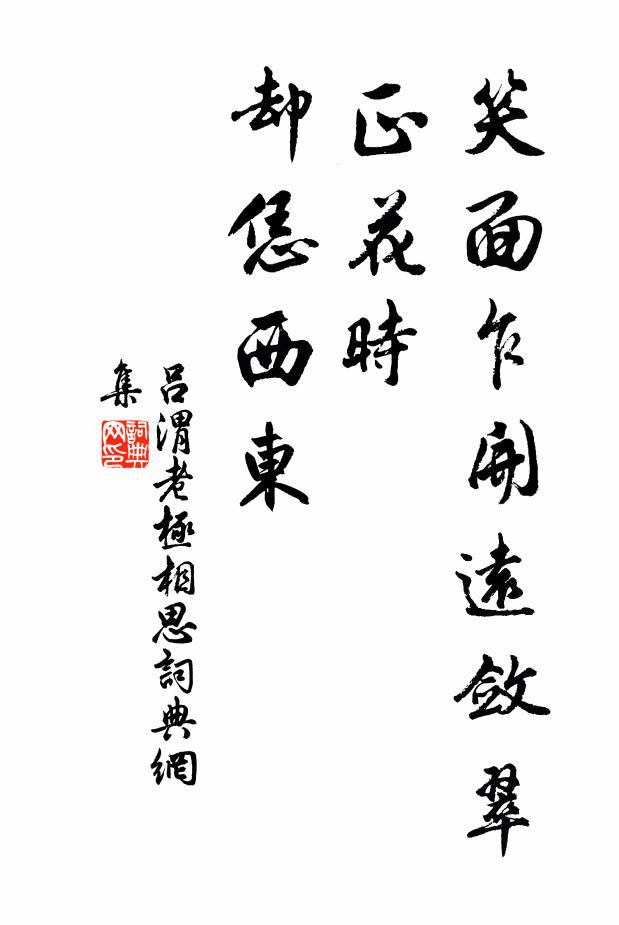 笑面乍開遠斂翠
正花時
却恁西東
呂渭老極相思詞典網
集
詞典
网印